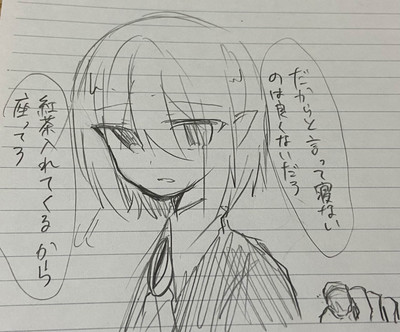 だからと言って寝ない
のは良くないだろ
紅茶入れてくるから
座ってろ